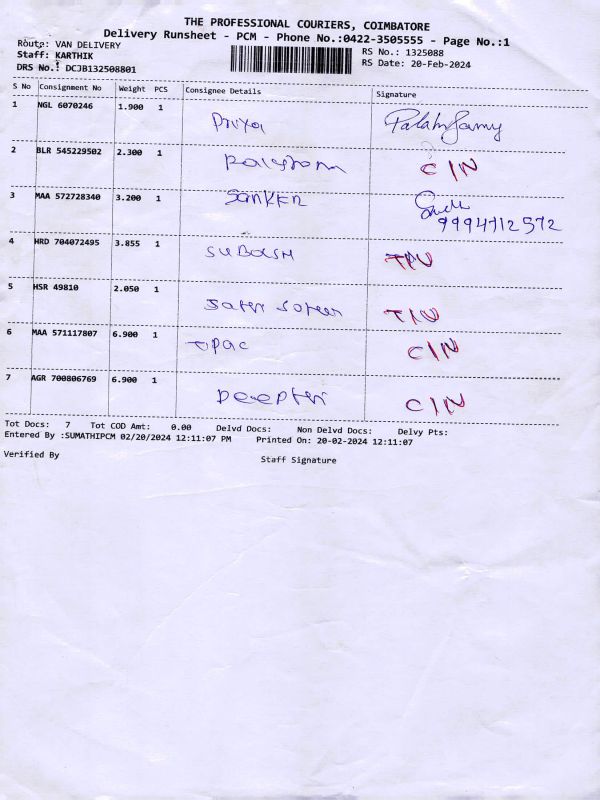 THE PROFESSIONAL COURIERS, COIMBATORE
Delivery Runsheet - PCM - Phone No.:0422-3505555 - Page No.:1
Route: VAN DELIVERY
Staff: KARTHIK
DRS No.: DCJB132508801
RS No.: 1325088
RS Date: 20-Feb-2024
S No Consignment No Weight PCS Consignee Details Signature
1 NGL 6070246 1.900 1 Priya
2 BLR 545229502 2.300 1 C/N
3 MAA 572728340 3.200 1 SANKER 9994712572
4 HRD 704072495 3.855 1 SUBASH T/N
5 HSR 49810 2.050 1 T/N
6 MAA 571117807 6.900 1 C/N
7 AGR 700806769 6.900 1 C/N
Tot Docs: 7 Tot COD Amt: 0.00 Delvd Docs: Non Delvd Docs: Delvy Pts:
Entered By :SUMATHIPCM 02/20/2024 12:11:07 PM Printed On: 20-02-2024 12:11:07
Verified By Staff Signature